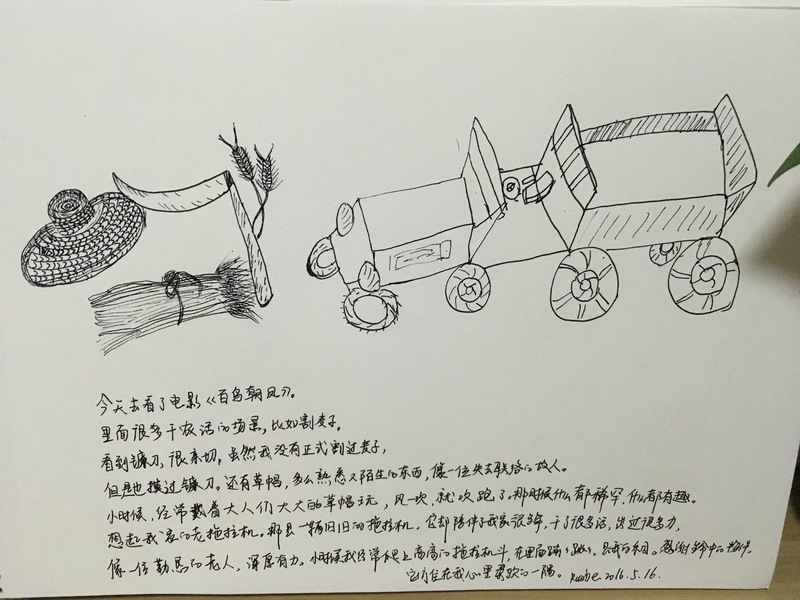 今天去看了电影《百鸟朝凤》。
里面很多干农活的场景,比如割麦子。
看到镰刀,很亲切,虽然我没有正式割过麦子,
但是也摸过镰刀。还有草帽,多么熟悉又陌生的东西,像一位失去联络的故人。
小时候,经常戴着大人们大大的草帽玩,风一吹,就吹跑了。那时候什么都稀罕,什么都有趣。
想起我家的老拖拉机。那是一辆旧旧的拖拉机。它却陪伴了我家很多年,干了很多活,出过很多力,
像一位勤恳的老人,深厚有力。小时候我经常爬上高高的拖拉机斗,在里面蹦蹦跳跳。感谢生命中的物件。
它们住在我心里柔软的一隅。2016.5.16.